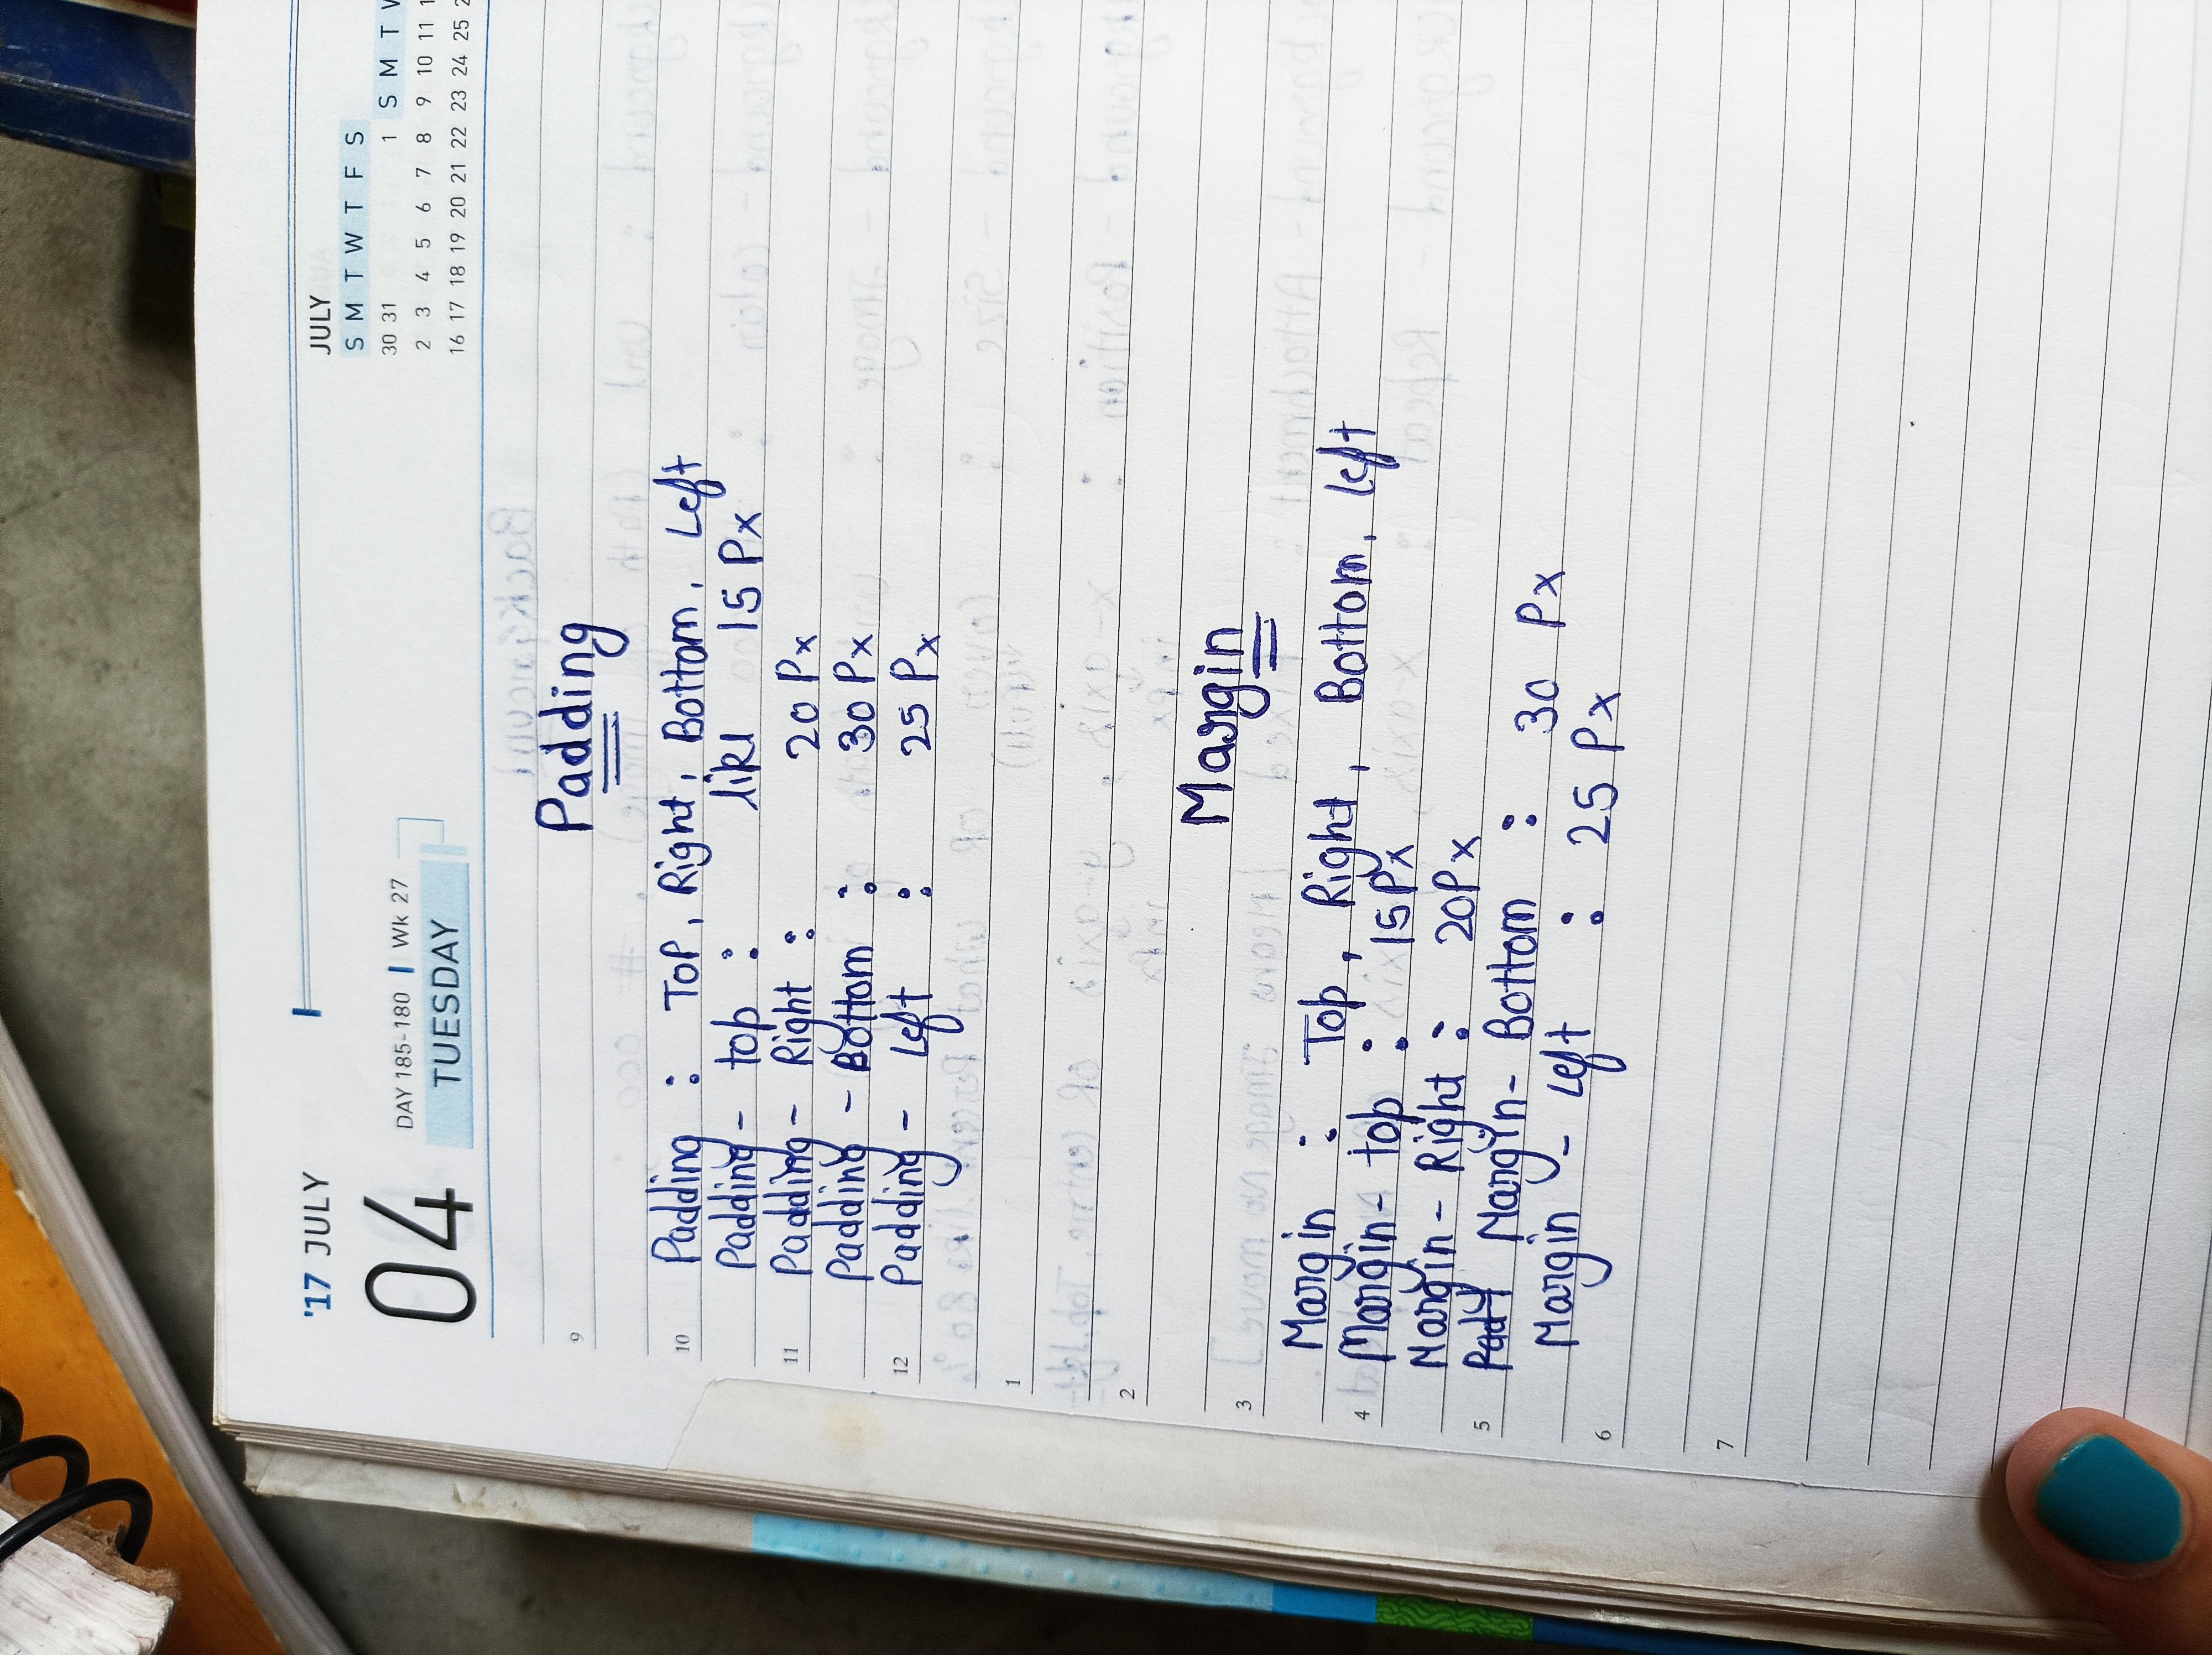 '17 JULY
04
DAY 185-180 | Wk 27
TUESDAY
JULY
S M T W T F S
30 31 1
2 3 4 5 6 7 8
16 17 18 19 20 21 22
S M T
9 10 11
23 24 25
9
Padding
10
Padding : Top, Right, Bottom, Left
Padding - top : like 15 Px
11
Padding - Right : 20 Px
Padding - Bottom : 30 Px
12
Padding - Left : 25 Px
1
2
3
Margin
Margin : Top, Right, Bottom, left
4
Margin - top : 15 Px
Margin - Right : 20Px
5
Margin - Bottom : 30 Px
Margin - Left : 25 Px
6
7